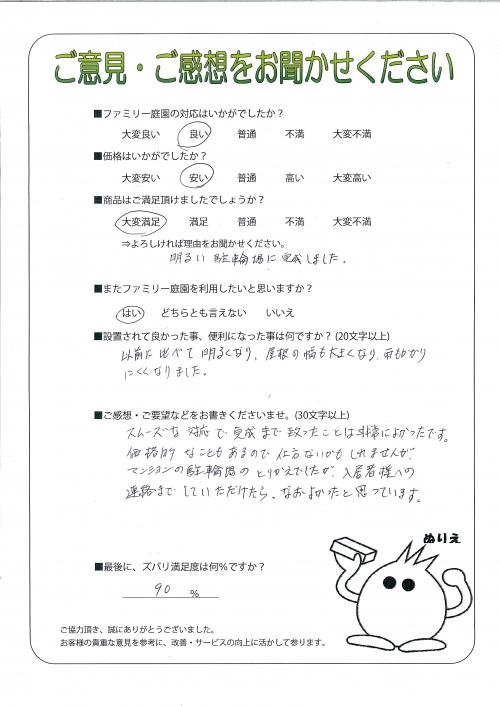 ご意見・ご感想をお聞かせください
■ファミリー庭園の対応はいかがでしたか？
大変良い 良い 普通 不満 大変不満
■価格はいかがでしたか？
大変安い 安い 普通 高い 大変高い
■商品はご満足頂けましたでしょうか？
大変満足 満足 普通 不満 大変不満
⇒よろしければ理由をお聞かせください。
明るい駐輪場に完成しました。
■またファミリー庭園を利用したいと思いますか？
はい どちらとも言えない いいえ
■設置されて良かった事、便利になった事は何ですか？(20文字以上)
以前に比べて明るくなり、屋根の幅も大きくなり、雨もかかり
にくくなりました。
■ご感想・ご要望などをお書きくださいませ。(30文字以上)
スムーズな対応で完成まで致ったことは非常によかったです。
価格的なこともあるので仕方ないかもしれませんが、
マンションの駐輪場のとりかえでしたが、入居者様への
連絡までしていただけたら、なおよかったと思っています。
ぬりえ
■最後に、ズバリ満足度は何％ですか？
90 ％
ご協力頂き、誠にありがとうございました。
お客様の貴重な意見を参考に、改善・サービスの向上に活かして参ります。